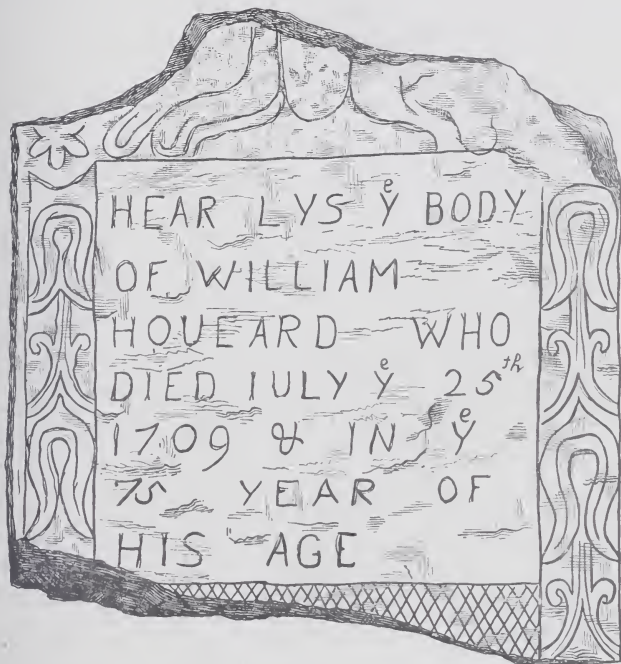 HEAR LYS Yᵉ BODY
OF WILLIAM
HOUEARD WHO
DIED IULY Yᵉ 25ᵗʰ
1709 & IN Yᵉ
75 YEAR OF
HIS AGE